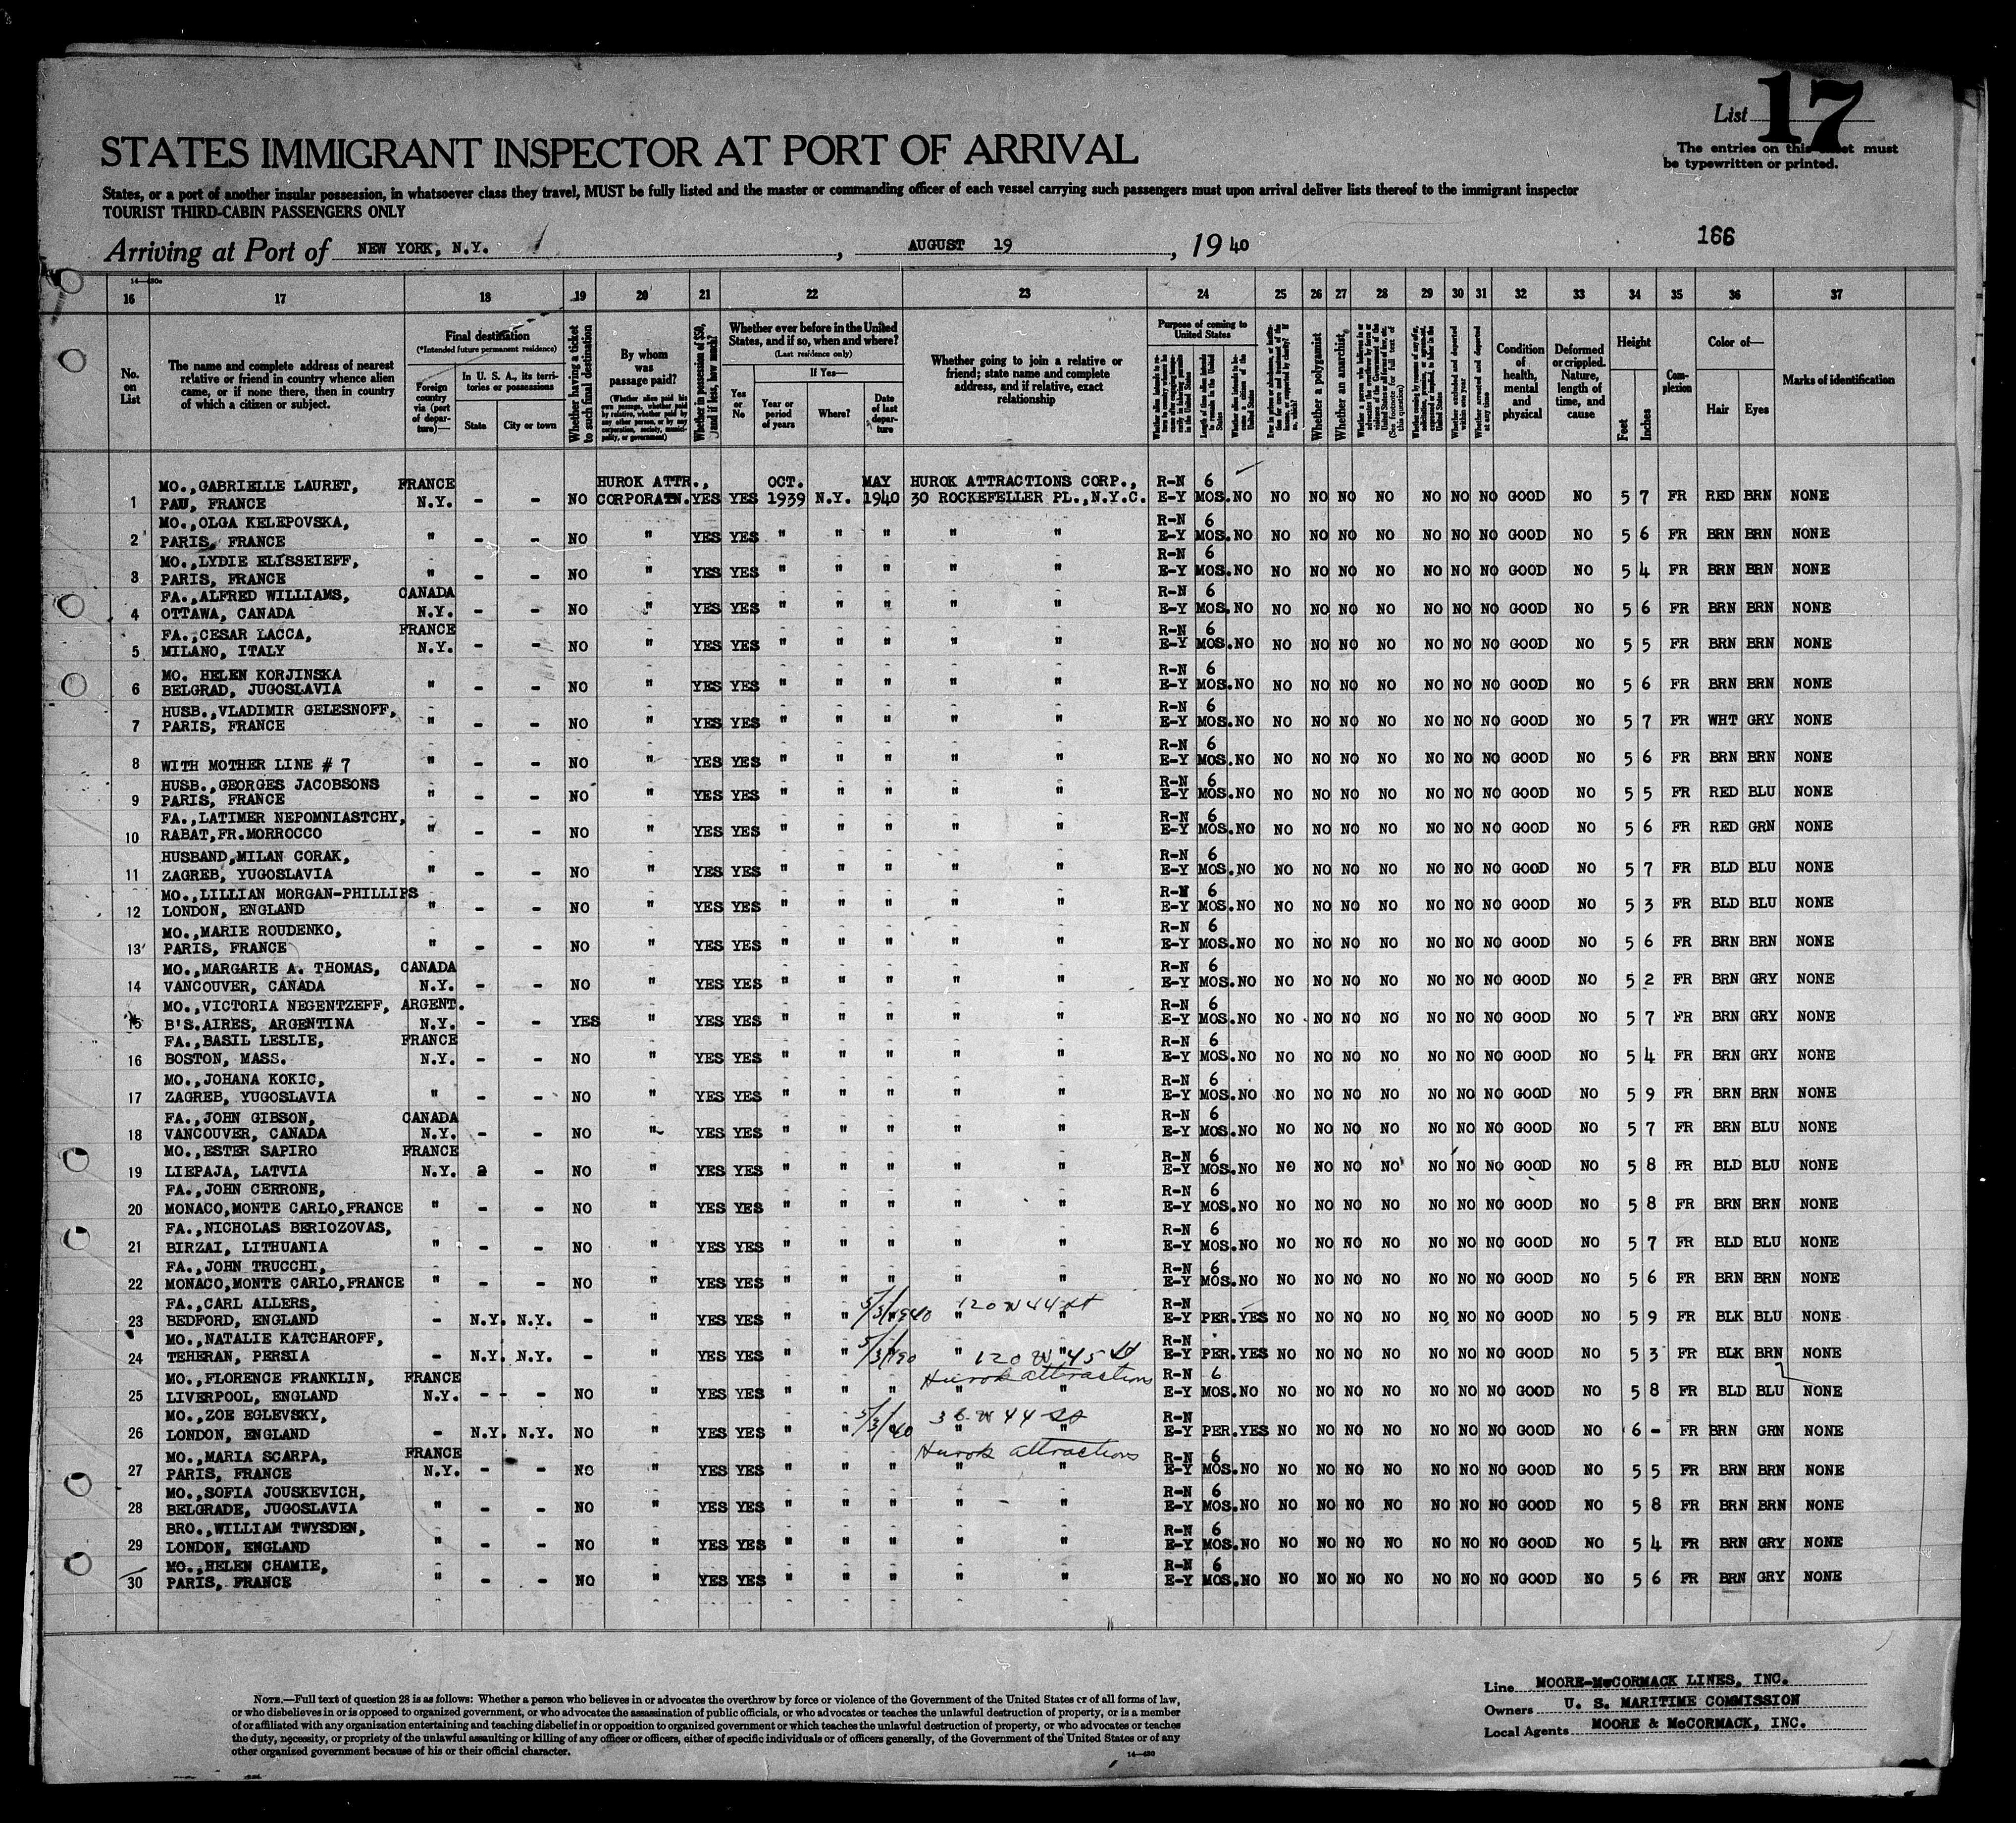 List 17
The entries on this sheet must
be typewritten or printed.
STATES IMMIGRANT INSPECTOR AT PORT OF ARRIVAL
States, or a port of another insular possession, in whatsoever class they travel, MUST be fully listed and the master or commanding officer of each vessel carrying such passengers must upon arrival deliver lists thereof to the immigrant inspector
TOURIST THIRD-CABIN PASSENGERS ONLY
166
Arriving at Port of NEW YORK, N.Y. , AUGUST 19 , 1940
16 17 18 19 20 21 22 23 24 25 26 27 28 29 30 31 32 33 34 35 36 37
No. on List
The name and complete address of nearest relative or friend in country whence alien came, or if none there, then in country of which a citizen or subject.
Final destination
(*Intended future permanent residence)
Foreign country via (port of departure)—
In U. S. A., its territories or possessions
State
City or town
Whether having a ticket to such final destination
By whom was passage paid?
(Whether alien paid his own passage, whether paid by relative, whether paid by any other person, or by any corporation, society, municipality, or government)
Whether in possession of $50, and if less, how much?
Whether ever before in the United States, and if so, when and where?
(Last residence only)
Yes or No
If Yes—
Year or period of years
Where?
Date of last departure
Whether going to join a relative or friend; state name and complete address, and if relative, exact relationship
Purpose of coming to United States
Whether a polygamist
Whether an anarchist
Condition of health, mental and physical
Deformed or crippled. Nature, length of time, and cause
Height
Feet
Inches
Complexion
Color of—
Hair
Eyes
Marks of identification
MO., GABRIELLE LAURET, FRANCE HUROK ATTR., OCT. MAY HUROK ATTRACTIONS CORP., R-N 6
1 PAU, FRANCE N.Y. - - NO CORPORATN. YES YES 1939 N.Y. 1940 30 ROCKEFELLER PL., N.Y.C. E-Y MOS. NO NO NO NO NO NO NO NO GOOD NO 5 7 FR RED BRN NONE
MO., OLGA KELEPOVSKA, R-N 6
2 PARIS, FRANCE " - - NO " YES YES " " " " " E-Y MOS. NO NO NO NO NO NO NO NO GOOD NO 5 6 FR BRN BRN NONE
MO., LYDIE ELISSEIEFF, R-N 6
3 PARIS, FRANCE " - - NO " YES YES " " " " " E-Y MOS. NO NO NO NO NO NO NO NO GOOD NO 5 4 FR BRN BRN NONE
FA., ALFRED WILLIAMS, CANADA R-N 6
4 OTTAWA, CANADA N.Y. - - NO " YES YES " " " " " E-Y MOS. NO NO NO NO NO NO NO NO GOOD NO 5 6 FR BRN BRN NONE
FA., CESAR LACCA, FRANCE R-N 6
5 MILANO, ITALY N.Y. - - NO " YES YES " " " " " E-Y MOS. NO NO NO NO NO NO NO NO GOOD NO 5 5 FR BRN BRN NONE
MO. HELEN KORJINSKA R-N 6
6 BELGRAD, JUGOSLAVIA " - - NO " YES YES " " " " " E-Y MOS. NO NO NO NO NO NO NO NO GOOD NO 5 6 FR BRN BRN NONE
HUSB., VLADIMIR GELESNOFF, R-N 6
7 PARIS, FRANCE " - - NO " YES YES " " " " " E-Y MOS. NO NO NO NO NO NO NO NO GOOD NO 5 7 FR WHT GRY NONE
R-N 6
8 WITH MOTHER LINE # 7 " - - NO " YES YES " " " " " E-Y MOS. NO NO NO NO NO NO NO NO GOOD NO 5 6 FR BRN BRN NONE
HUSB., GEORGES JACOBSONS R-N 6
9 PARIS, FRANCE " - - NO " YES YES " " " " " E-Y MOS. NO NO NO NO NO NO NO NO GOOD NO 5 5 FR RED BLU NONE
FA., LATIMER NEPOMNIASTCHY, R-N 6
10 RABAT, FR. MORROCCO " - - NO " YES YES " " " " " E-Y MOS. NO NO NO NO NO NO NO NO GOOD NO 5 6 FR RED GRN NONE
HUSBAND, MILAN CORAK, R-N 6
11 ZAGREB, YUGOSLAVIA " - - NO " YES YES " " " " " E-Y MOS. NO NO NO NO NO NO NO NO GOOD NO 5 7 FR BLD BLU NONE
MO., LILLIAN MORGAN-PHILLIPS R-N 6
12 LONDON, ENGLAND " - - NO " YES YES " " " " " E-Y MOS. NO NO NO NO NO NO NO NO GOOD NO 5 3 FR BLD BLU NONE
MO., MARIE ROUDENKO, R-N 6
13 PARIS, FRANCE " - - NO " YES YES " " " " " E-Y MOS. NO NO NO NO NO NO NO NO GOOD NO 5 6 FR BRN BRN NONE
MO., MARGARIE A. THOMAS, CANADA R-N 6
14 VANCOUVER, CANADA N.Y. - - NO " YES YES " " " " " E-Y MOS. NO NO NO NO NO NO NO NO GOOD NO 5 2 FR BRN GRY NONE
MO., VICTORIA NEGENTZEFF, ARGENT. R-N 6
15 B'S. AIRES, ARGENTINA N.Y. - - YES " YES YES " " " " " E-Y MOS. NO NO NO NO NO NO NO NO GOOD NO 5 7 FR BRN GRY NONE
FA., BASIL LESLIE, FRANCE R-N 6
16 BOSTON, MASS. N.Y. - - NO " YES YES " " " " " E-Y MOS. NO NO NO NO NO NO NO NO GOOD NO 5 4 FR BRN GRY NONE
MO., JOHANA KOKIC, R-N 6
17 ZAGREB, YUGOSLAVIA " - - NO " YES YES " " " " " E-Y MOS. NO NO NO NO NO NO NO NO GOOD NO 5 9 FR BRN BRN NONE
FA., JOHN GIBSON, CANADA R-N 6
18 VANCOUVER, CANADA N.Y. - - NO " YES YES " " " " " E-Y MOS. NO NO NO NO NO NO NO NO GOOD NO 5 7 FR BRN BLU NONE
MO., ESTER SAPIRO FRANCE R-N 6
19 LIEPAJA, LATVIA N.Y. - NO " YES YES " " " " " E-Y MOS. NO NO NO NO NO NO NO NO GOOD NO 5 8 FR BLD BLU NONE
FA., JOHN CERRONE, R-N 6
20 MONACO, MONTE CARLO, FRANCE " - - NO " YES YES " " " " " E-Y MOS. NO NO NO NO NO NO NO NO GOOD NO 5 8 FR BRN BRN NONE
FA., NICHOLAS BERIOZOVAS, R-N 6
21 BIRZAI, LITHUANIA " - - NO " YES YES " " " " " E-Y MOS. NO NO NO NO NO NO NO NO GOOD NO 5 7 FR BLD BLU NONE
FA., JOHN TRUCCHI, R-N 6
22 MONACO, MONTE CARLO, FRANCE " - - NO " YES YES " " " " " E-Y MOS. NO NO NO NO NO NO NO NO GOOD NO 5 6 FR BRN BRN NONE
FA., CARL ALLERS, 5/3/1940 120 W 44 St R-N
23 BEDFORD, ENGLAND - N.Y. N.Y. - " YES YES " " " " " E-Y PER. YES NO NO NO NO NO NO NO GOOD NO 5 9 FR BLK BLU NONE
MO., NATALIE KATCHAROFF, 5/3/40 120 W 45 St R-N
24 TEHERAN, PERSIA - N.Y. N.Y. - " YES YES " " " " " E-Y PER. YES NO NO NO NO NO NO NO GOOD NO 5 3 FR BLK BRN NONE
MO., FLORENCE FRANKLIN, FRANCE Hurok attractions R-N 6
25 LIVERPOOL, ENGLAND N.Y. - - NO " YES YES " " " " " E-Y MOS. NO NO NO NO NO NO NO NO GOOD NO 5 8 FR BLD BLU NONE
MO., ZOE EGLEVSKY, 5/3/40 36 W 44 St R-N
26 LONDON, ENGLAND - N.Y. N.Y. NO " YES YES " " " " E-Y PER. YES NO NO NO NO NO NO NO GOOD NO 6 - FR BRN GRN NONE
MO., MARIA SCARPA, FRANCE Hurok attractions R-N 6
27 PARIS, FRANCE N.Y. - - NO " YES YES " " " " " E-Y MOS. NO NO NO NO NO NO NO NO GOOD NO 5 5 FR BRN BRN NONE
MO., SOFIA JOUSKEVICH, R-N 6
28 BELGRADE, JUGOSLAVIA " - - NO " YES YES " " " " " E-Y MOS. NO NO NO NO NO NO NO NO GOOD NO 5 8 FR BRN BRN NONE
BRO., WILLIAM TWYSDEN, R-N 6
29 LONDON, ENGLAND " - - NO " YES YES " " " " " E-Y MOS. NO NO NO NO NO NO NO NO GOOD NO 5 4 FR BRN GRY NONE
MO., HELEN CHAMIE, R-N 6
30 PARIS, FRANCE " - - NO " YES YES " " " " " E-Y MOS. NO NO NO NO NO NO NO NO GOOD NO 5 6 FR BRN GRY NONE
NOTE.—Full text of question 28 is as follows: Whether a person who believes in or advocates the overthrow by force or violence of the Government of the United States or of all forms of law,
or who disbelieves in or is opposed to organized government, or who advocates the assassination of public officials, or who advocates or teaches the unlawful destruction of property, or is a member
of or affiliated with any organization entertaining and teaching disbelief in or opposition to organized government or which teaches the unlawful destruction of property, or who advocates or teaches
the duty, necessity, or propriety of the unlawful assaulting or killing of any officer or officers, either of specific individuals or of officers generally, of the Government of the United States or of any
other organized government because of his or their official character.
14—430
Line MOORE-McCORMACK LINES, INC.
Owners U. S. MARITIME COMMISSION
Local Agents MOORE & McCORMACK, INC.